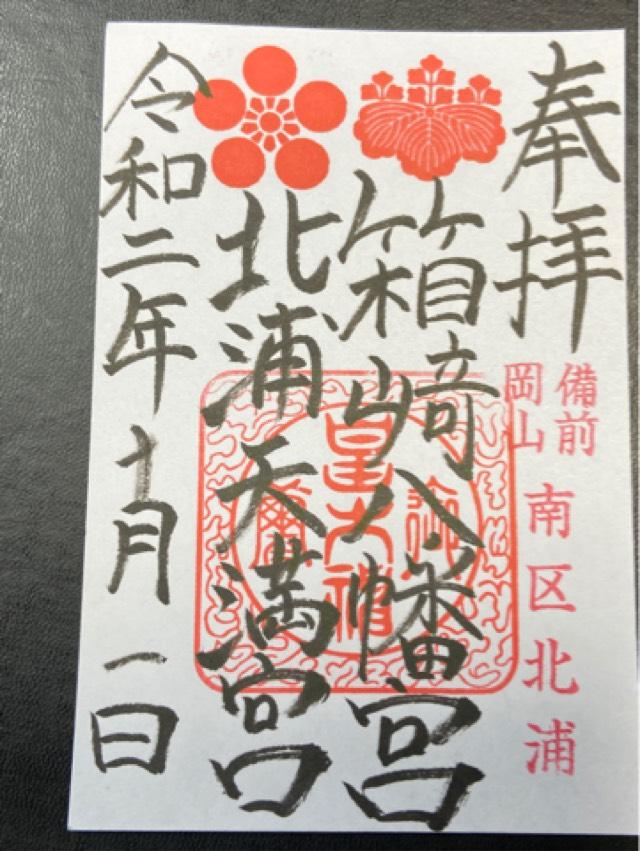 奉拝
備前
岡山
南区北浦
箱崎八幡宮
北浦天満宮
令和二年十月一日
皇大神